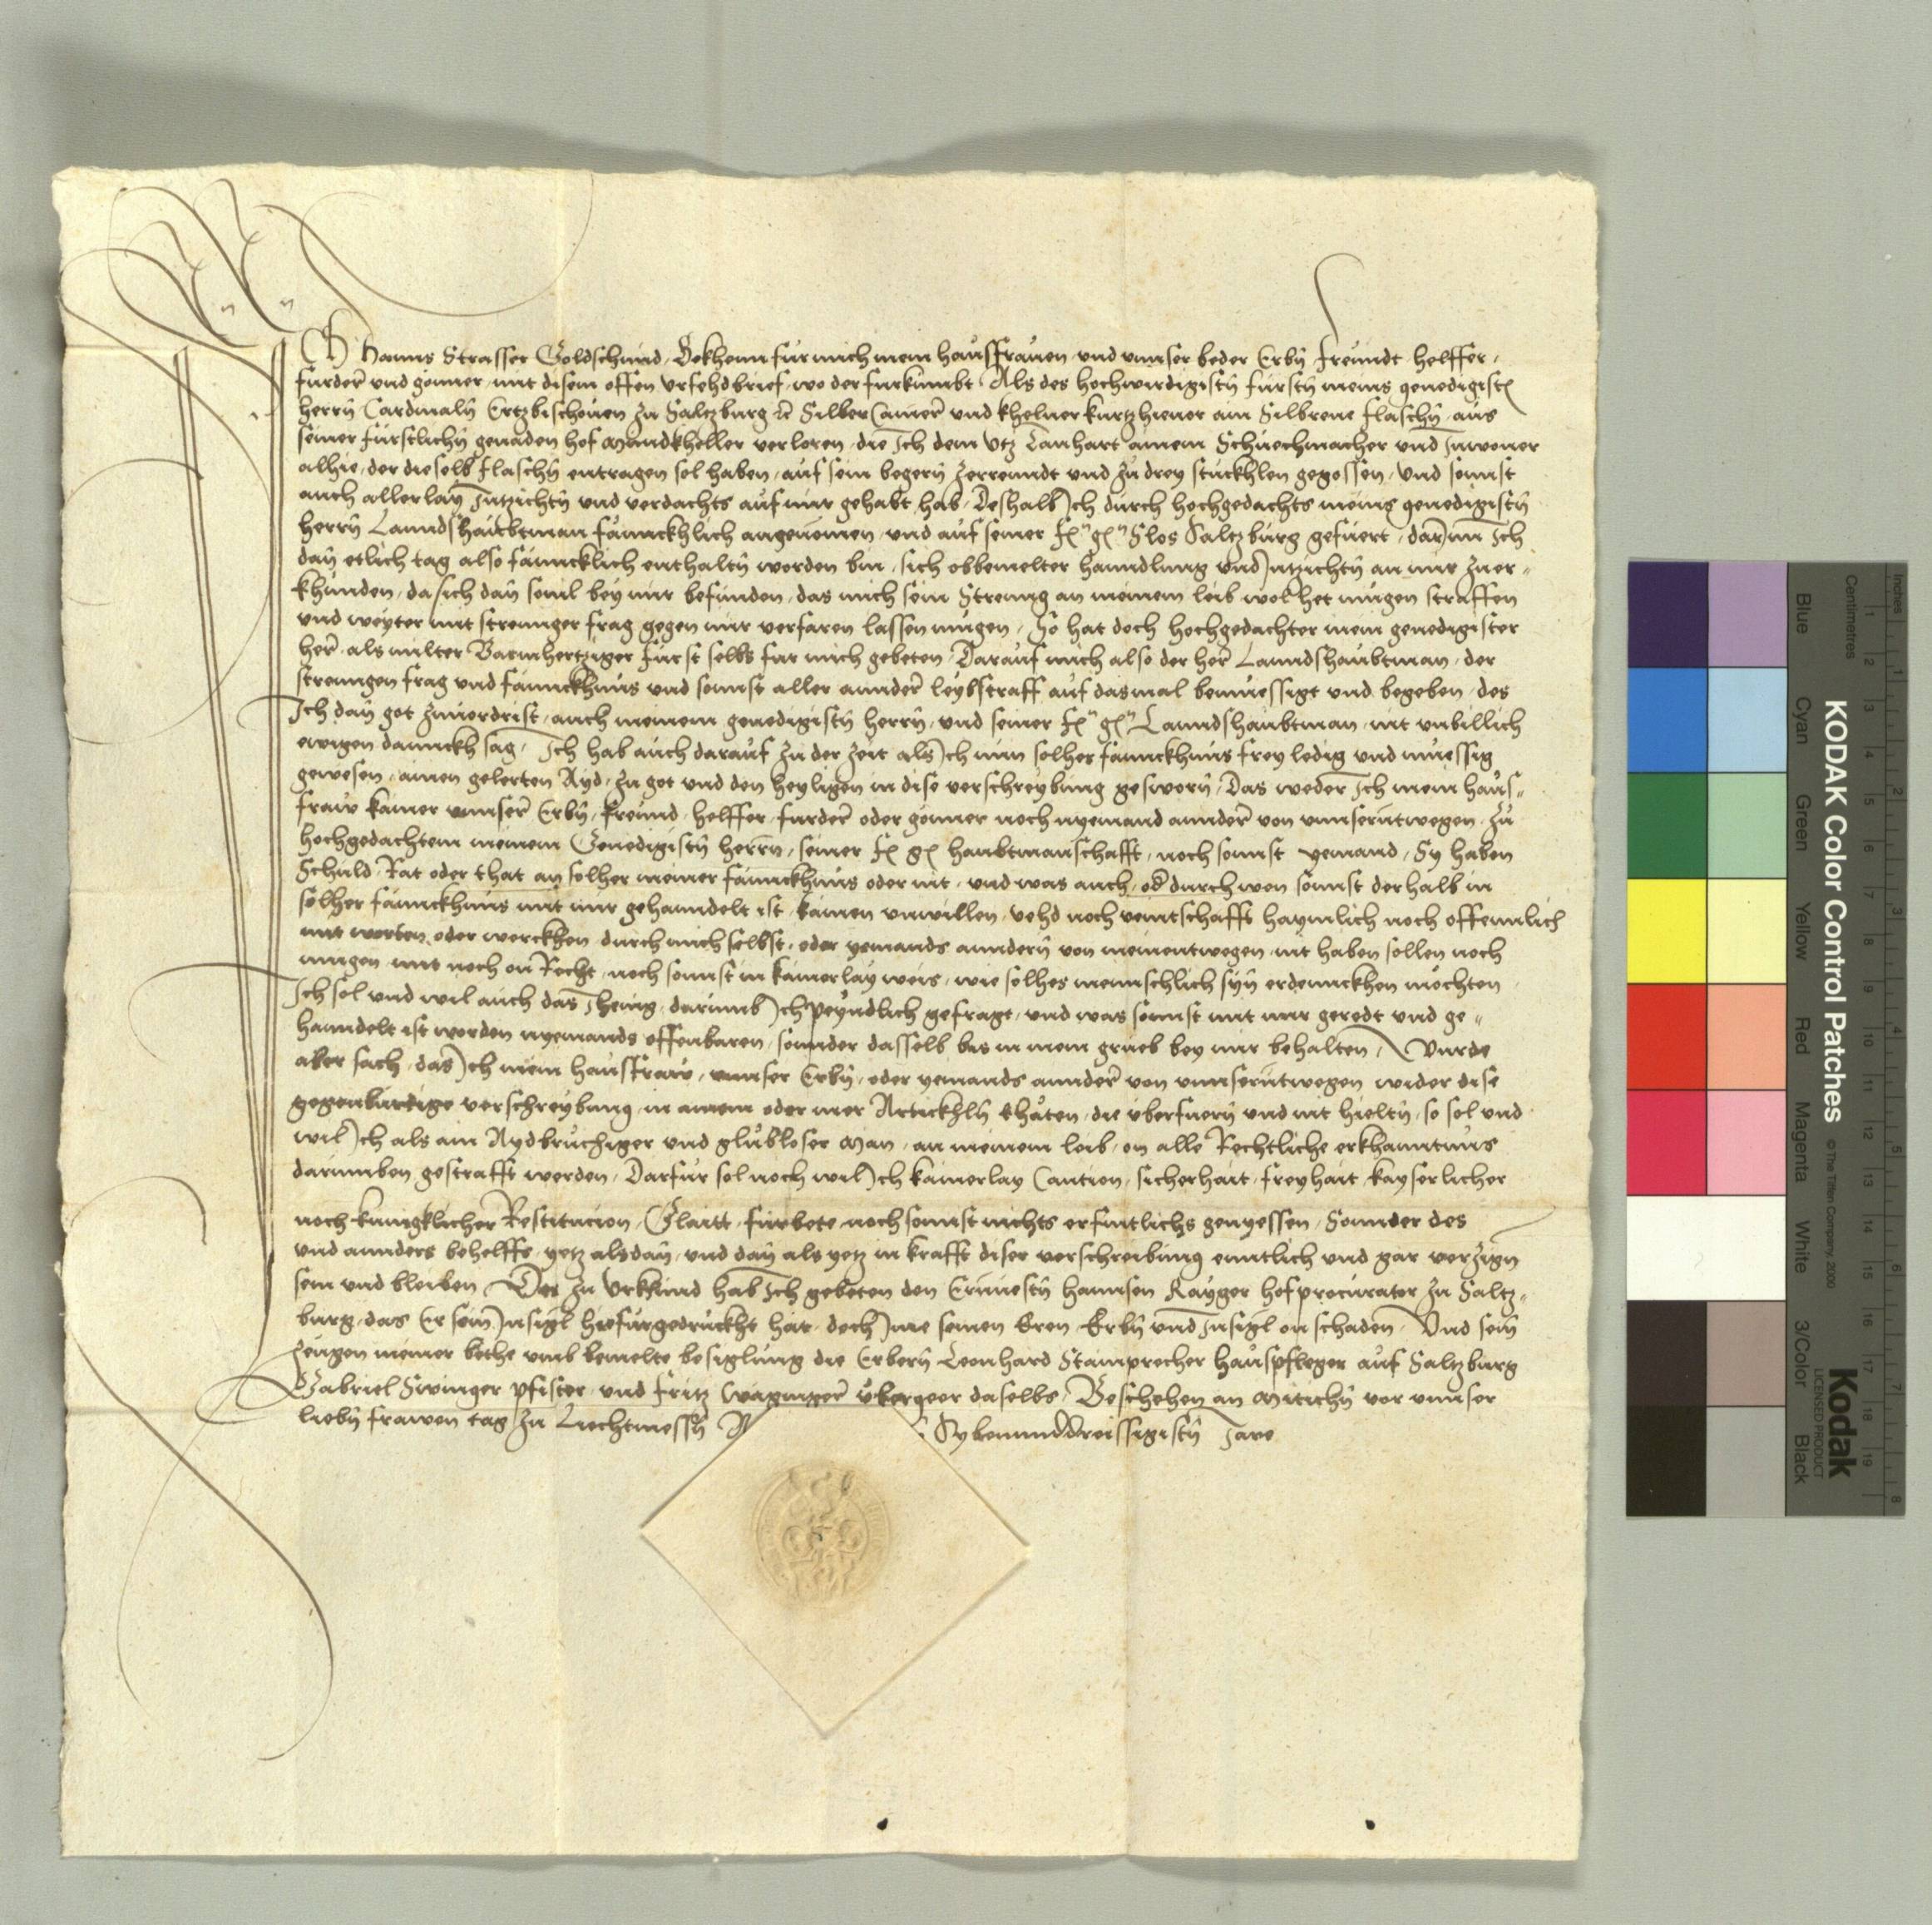 Ich Hanns Strasser Goldschmid, Bekhenn fur mich mein hausfrauen und unnser beder Erbn̄ freundt helffer,
furder̄ und gonner, mit disem offen Urfehdbrief, wo der furkumbt, Als des hochwirdigistn̄ fürstn̄ meins genedigistn̄
herrn̄ Cardinaln̄ Ertzbischouen zu Saltzburg ꝛc Silber Camer̄ und khelner kurtz hieuor ain Silbrene flaschn̄, aus
seiner fürstlichn̄ genaden hof Mundkheller verloren, die Ich dem Utz Lanhart ainem Schuechmacher und Inwoner
alhie, der dieselb flaschn̄ entragen sol haben, auf sein begern̄ zerrenndt und zu drey stuckhlen gegossen, und sonnst
auch allerlay Inntzichtn̄ und verdachts auf mir gehabt hab, Deshalb Ich durch hochgedachts meins genedigistn̄
herrn̄ Lanndshaubtman fännckhlich angenomen, und auf seiner f. g. Slos Saltzburg gefuert, darinn Ich
dan̄ etlich tag also fänncklich enthaltn̄ worden bin, sich obbemelter hanndlung und Intzichtn̄ an mir zuer-
khunden, da sich dan̄ souil bey mir befunden, das mich sein Strenng an meinem leib wol het mugen straffen
und weyter mit strennger frag gegen mir verfaren lassen mugen, So hat doch hochgedachter mein genedigister
her̄ als milter Barmhertziger fürst selbs fur mich gebeten, Darauf mich also der her̄ Lanndshaubtman, der
strenngen frag und fännckhnus und sonnst aller annder̄ leybstraff auf dasmal bemuessigt und begeben, des
Ich dan̄ got zuuordrist, auch meinem genedigistn̄ herrn̄, und seiner f. g. Lanndshaubtman, nit unbillich
ewigen dannckh sag, Ich hab auch darauf zu der zeit als Ich nun solher fännckhnus frey ledig und muessig
gewesen, ainen gelerten Ayd, zu got und den heyligen in dise verschreybung gesworn̄, Das weder Ich mein haus-
fraw kainer unnser̄ Erbn̄, freund, helffer, furder̄ oder gonner noch nyemand annder̄ von unnserntwegen, zu
hochgedachtem meinem Genedigistn̄ herrn̄, seiner f. g. haubtmanschafft, noch sonnst yemand, Sy haben
Schuld, Rat oder that an solher meiner fännckhnus oder nit, und was auch, od̄ durch wen sonnst derhalb in
solher fännckhnus mit mir gehanndelt ist, kainen unwillen, vehd noch veintschafft haymlich noch offennlich
mit worten oder werckhen durch mich selbst, oder yemands anndern̄ von meinentwegen nit haben sollen noch
mugen mit noch on Recht, noch sonnst in kainerlay weis, wie solhes mennschlich syn̄ erdennckhen mochten
Ich sol und wil auch das Ihenig, darumb Ich peyndlich gefragt, und was sonnst mit mir geredt und ge-
hanndelt ist worden nyemands offenbaren, sonnder dasselb, bis in mein grueb bey mir behalten, Wurde
aber sach, das Ich mein hausfraw, unnser Erbn̄, oder yemands annder̄ von unnserntwegen wider dise
gegenburtige verschreybung, in ainem oder mer Artickhln̄ thäten, die überfuern̄ und nit hieltn̄, so sol und
wil Ich als ain Aydbruchiger und glubloser Man, an meinem leib, on alle Rechtliche erkhanntnus
darumben gestrafft werden, Darfur sol noch wil Ich kainerlay Caution, sicherhait, freyhait, kayserlicher
noch kunigklicher Restitucion, Glaitt, furbete noch sonnst nichts erfintlichs genyessen, Sonnder des
und annders behelffs, yetz alsdan̄, und dan̄ als yetz in krafft diser verschreibung enntlich und gar verzign
sein und bleiben, Des zu Urkhund hab Ich gebeten den Ernuestn̄ Hannsen Kayger hofprocurator zu Saltz-
burg, das Er sein Insigl hiefurgedruckht hat, doch Ime seinen Eren, Erbn̄ und Insigl on schaden, Und sein̄
zeugen meiner bethe umb bemelte besiglung die Erbern̄ Leonhard Stamprecher hauspfleger auf Saltzburg
Gabriel Swinger pfister, und fritz Waginger̄ daselbs, Beschehen an Mitichn̄ vor unnser
liebn̄ frawen tag zu Liechtmessn̄ Sybenunddreissigistn̄ Jare
KODAK Color Control Patches © The Tiffen Company, 2000
Kodak
LICENSED PRODUCT
Centimetres
Inches
Blue Cyan Green Yellow Red Magenta White 3/Color Black
1 2 3 4 5 6 7 8 9 10 11 12 13 14 15 16 17 18 19
1 2 3 4 5 6 7 8